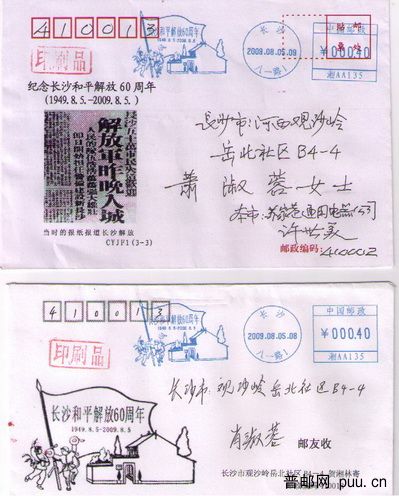 410013
长沙和平解放60周年
1949.8.5-2009.8.5
长沙
2009.08.05.09
八一路1
贴邮
票处
中国邮政
¥000.40
湘AA135
印刷品
纪念长沙和平解放60周年
(1949.8.5.-2009.8.5.)
解放军昨晚入城
当时的报纸报道长沙解放
CYJF1(3-3)
长沙市河西观沙岭
岳北社区B4-4
萧淑蓉女士
邮政编码:410002
410013
长沙和平解放60周年
1949.8.5-2009.8.5
长沙
2009.08.05.08
八一路1
中国邮政
¥000.40
湘AA135
印刷品
长沙和平解放60周年
1949.8.5-2009.8.5
长沙市观沙岭岳北社区B4-4
肖淑蓉 邮友收
长沙市观沙岭岳北社区B4-4 贺湘林寄
普邮网 puu.cn